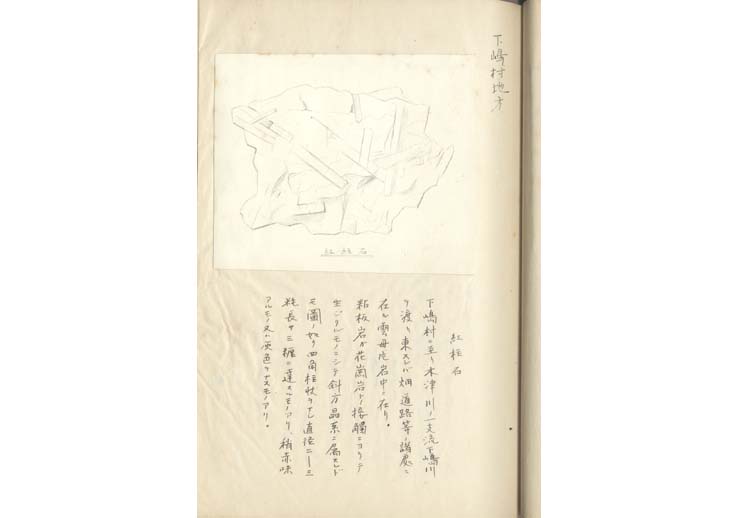 下嶋村地方
紅柱石
紅柱石
下嶋村ニ至リ木津川ノ一支流下嶋川
ヲ渡リ東スレバ畑道路等ノ諸処ニ
在ル雲母片岩中ニ在リ。
粘板岩ガ花崗岩トノ接觸ニヨリテ
生ジタルモノニシテ斜方晶系ニ属スレド
モ圖ノ如ク四角柱状ヲナシ直径二—三
粍長サ三糎ニ達スルモノアリ、稍赤味
アルモノ又ハ灰色ヲナスモノアリ。